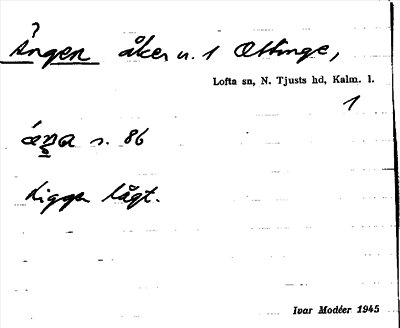 ?
Ängen åker u. 1 Ottinge,
Lofta sn, N. Tjusts hd, Kalm. l.
1
s. 86
Ligger lågt.
Ivar Modéer 1945